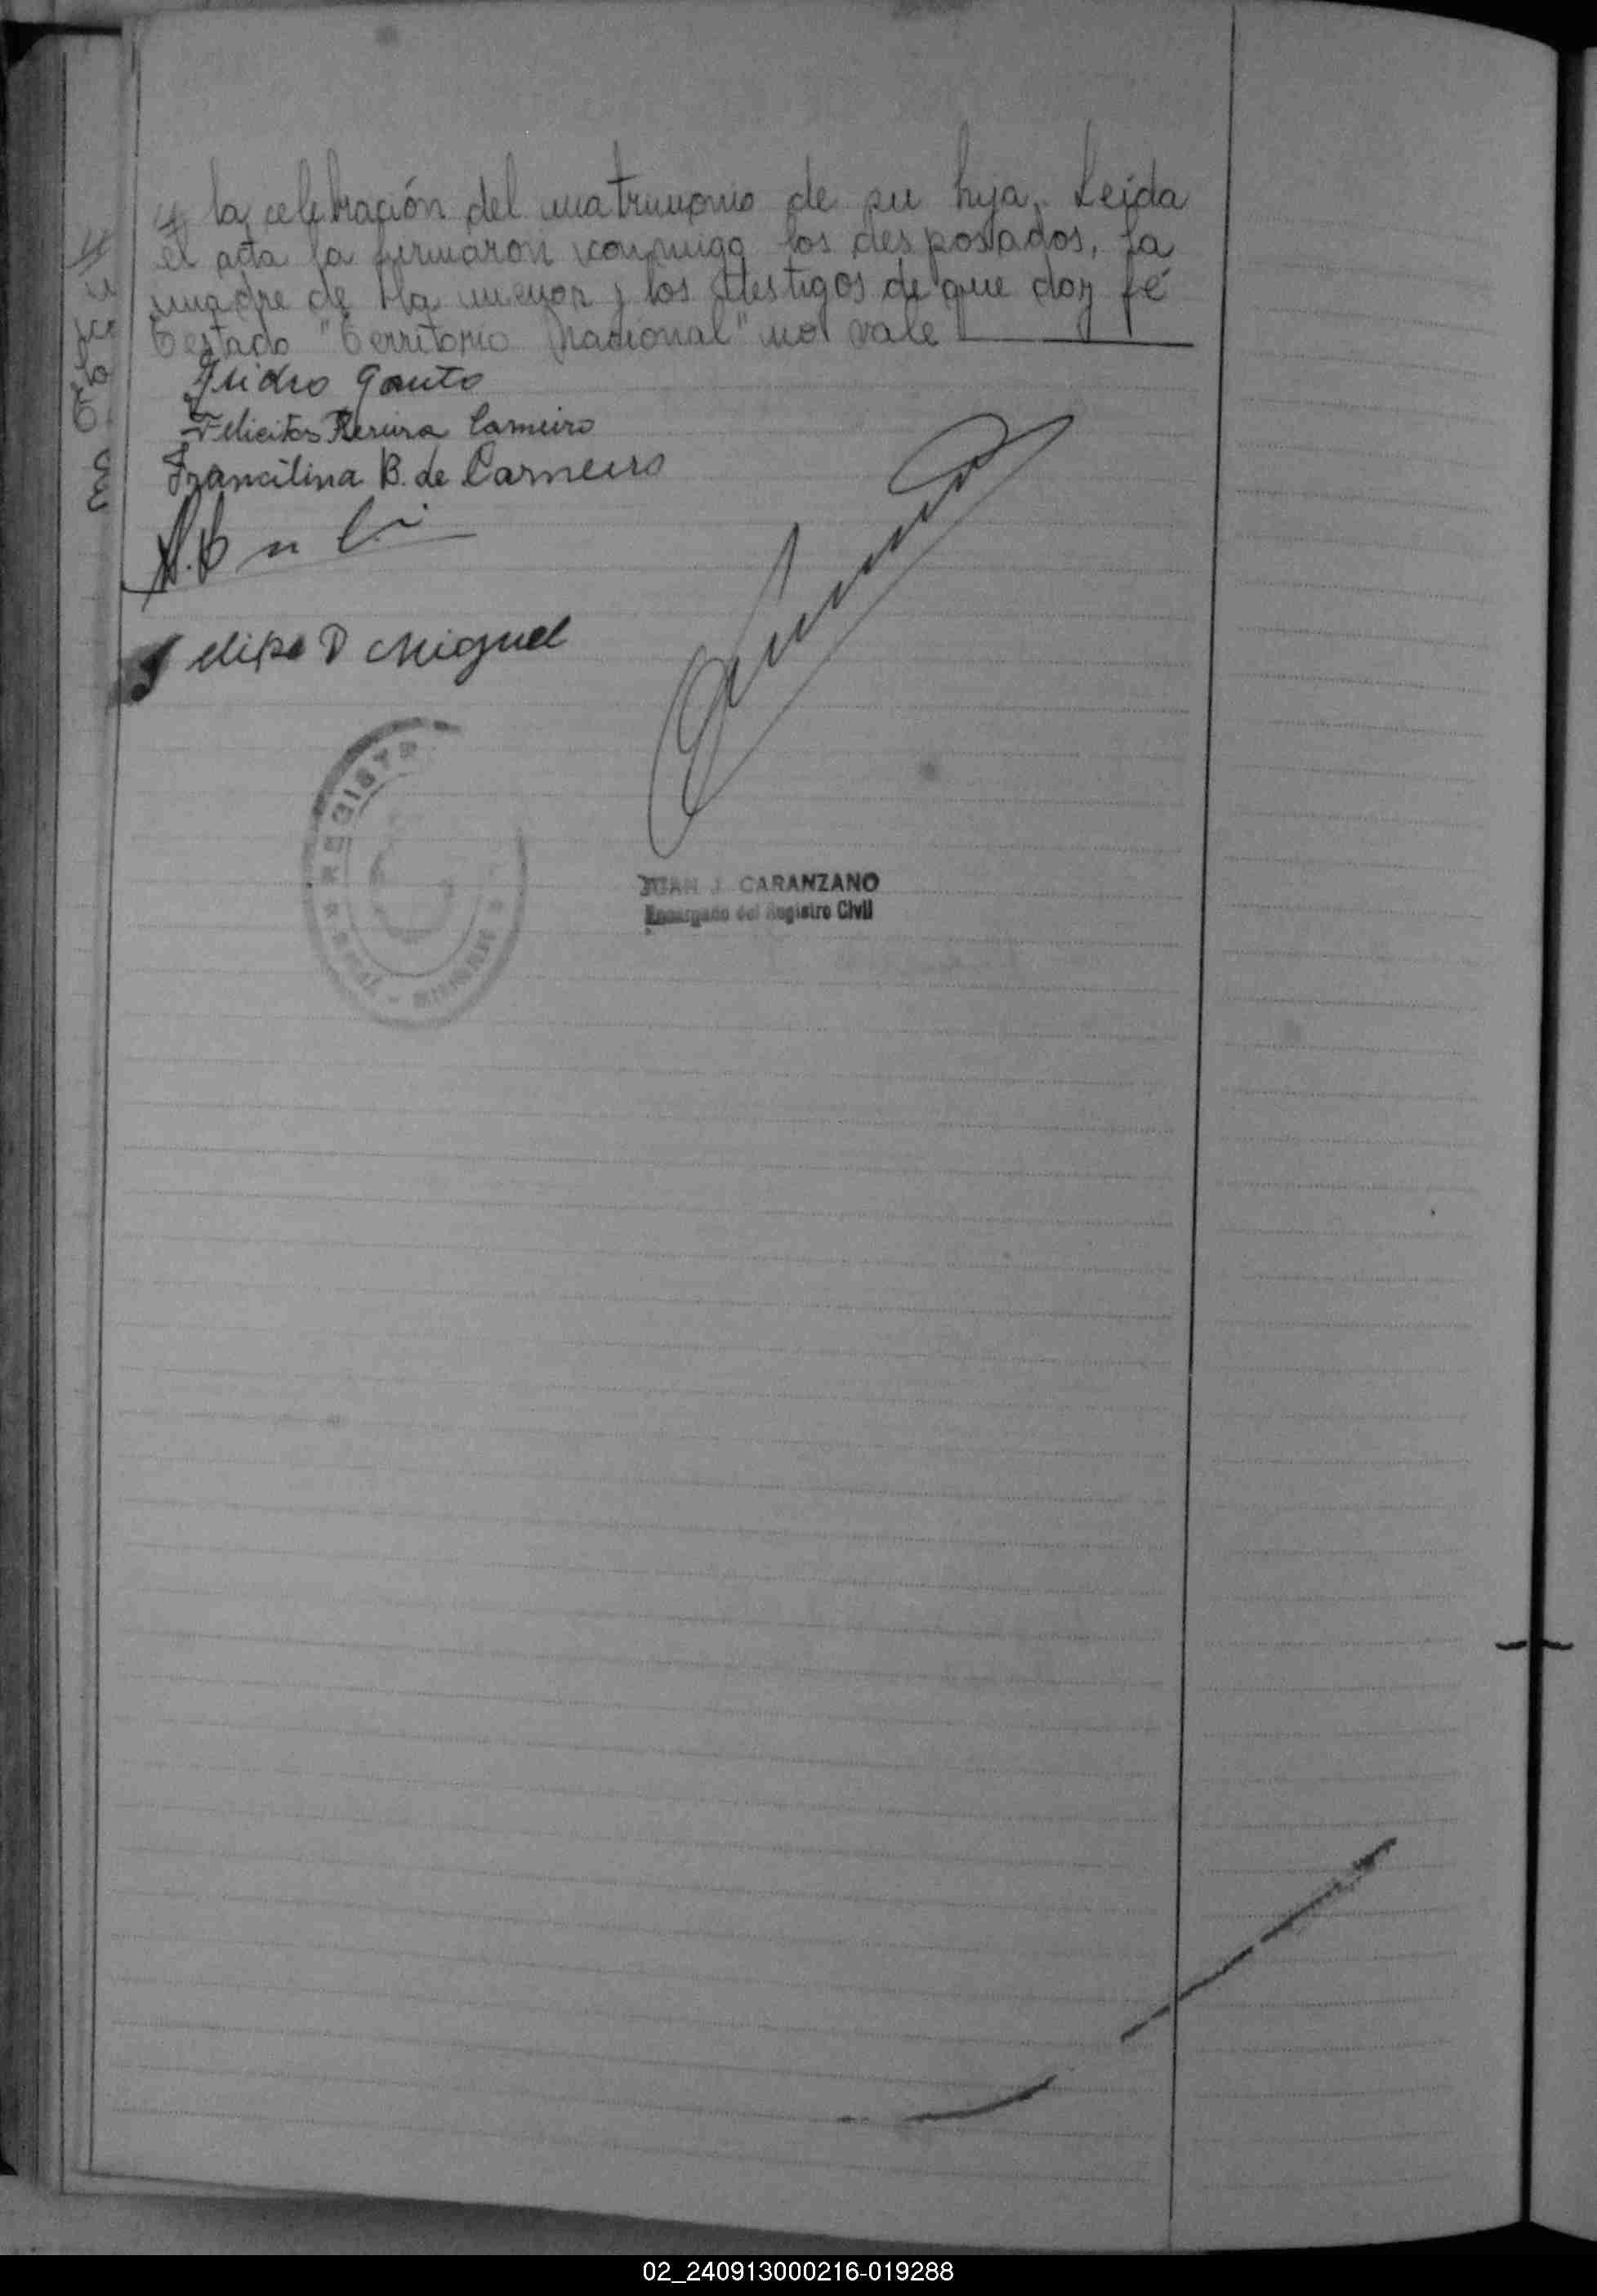 la celebración del matrimonio de su hija. Leida
el acta la firmaron conmigo los desposados, la
madre de la menor y los testigos de que doy fé
Testado "Territorio Nacional" no vale
Isidro Gauto
Felicitas Pereira Carneiro
Francilina B. de Carneiro
Felipe D Miguel
REGISTR
MISIONES
JUAN J. CARANZANO
Encargado del Registro Civil
02_240913000216-019288